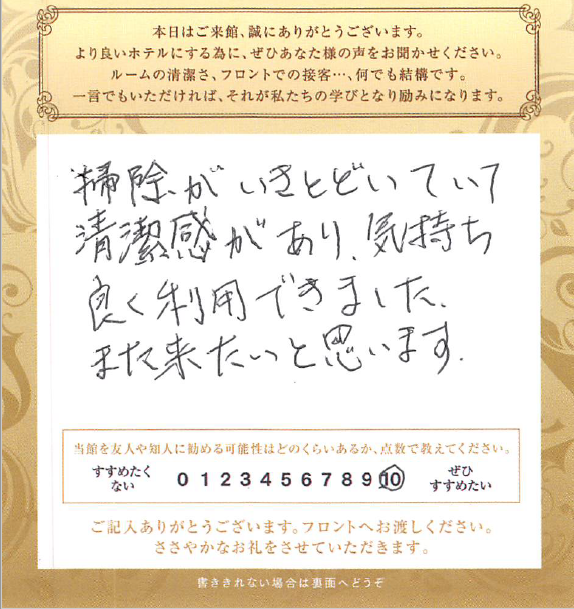 本日はご来館、誠にありがとうございます。
より良いホテルにする為に、ぜひあなた様の声をお聞かせください。
ルームの清潔さ、フロントでの接客…、何でも結構です。
一言でもいただければ、それが私たちの学びとなり励みになります。
掃除がいきとどいていて
清潔感があり、気持ち
良く利用できました、
また来たいと思います。
当館を友人や知人に勧める可能性はどのくらいあるか、点数で教えてください。
すすめたくない 0 1 2 3 4 5 6 7 8 9 10 ぜひすすめたい
ご記入ありがとうございます。フロントへお渡しください。
ささやかなお礼をさせていただきます。
書ききれない場合は裏面へどうぞ